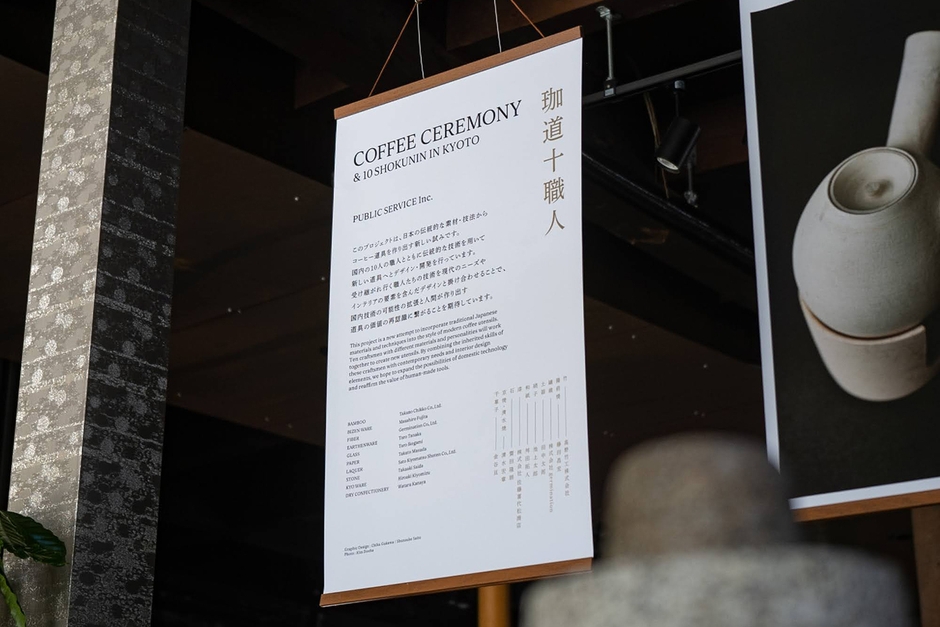 COFFEE CEREMONY
& 10 SHOKUNIN IN KYOTO
珈道十職人
PUBLIC SERVICE Inc.
このプロジェクトは、日本の伝統的な素材・技法から
コーヒー道具を作り出す新しい試みです。
国内の10人の職人とともに伝統的な技術を用いて
新しい道具へとデザイン・開発を行っています。
受け継がれ行く職人たちの技術を現代のニーズや
インテリアの要素を含んだデザインと掛け合わせることで、
国内技術の可能性の拡張と人間が作り出す
道具の価値の再認識に繋がることを期待しています。
This project is a new attempt to incorporate traditional Japanese
materials and techniques into the style of modern coffee utensils.
Ten craftsmen with different materials and personalities will work
together to create new utensils. By combining the inherited skills of
these craftsmen with contemporary needs and interior design
elements, we hope to expand the possibilities of domestic technology
and reaffirm the value of human-made tools.
BAMBOO Takano Chikko Co., Ltd.
BIZEN WARE Masahiro Fujita
FIBER Germination Co., Ltd.
EARTHENWARE Taro Tanaka
GLASS
PAPER
LAQUER
STONE Takaaki Saida
KYO WARE
DRY CONFECTIONERY Wataru